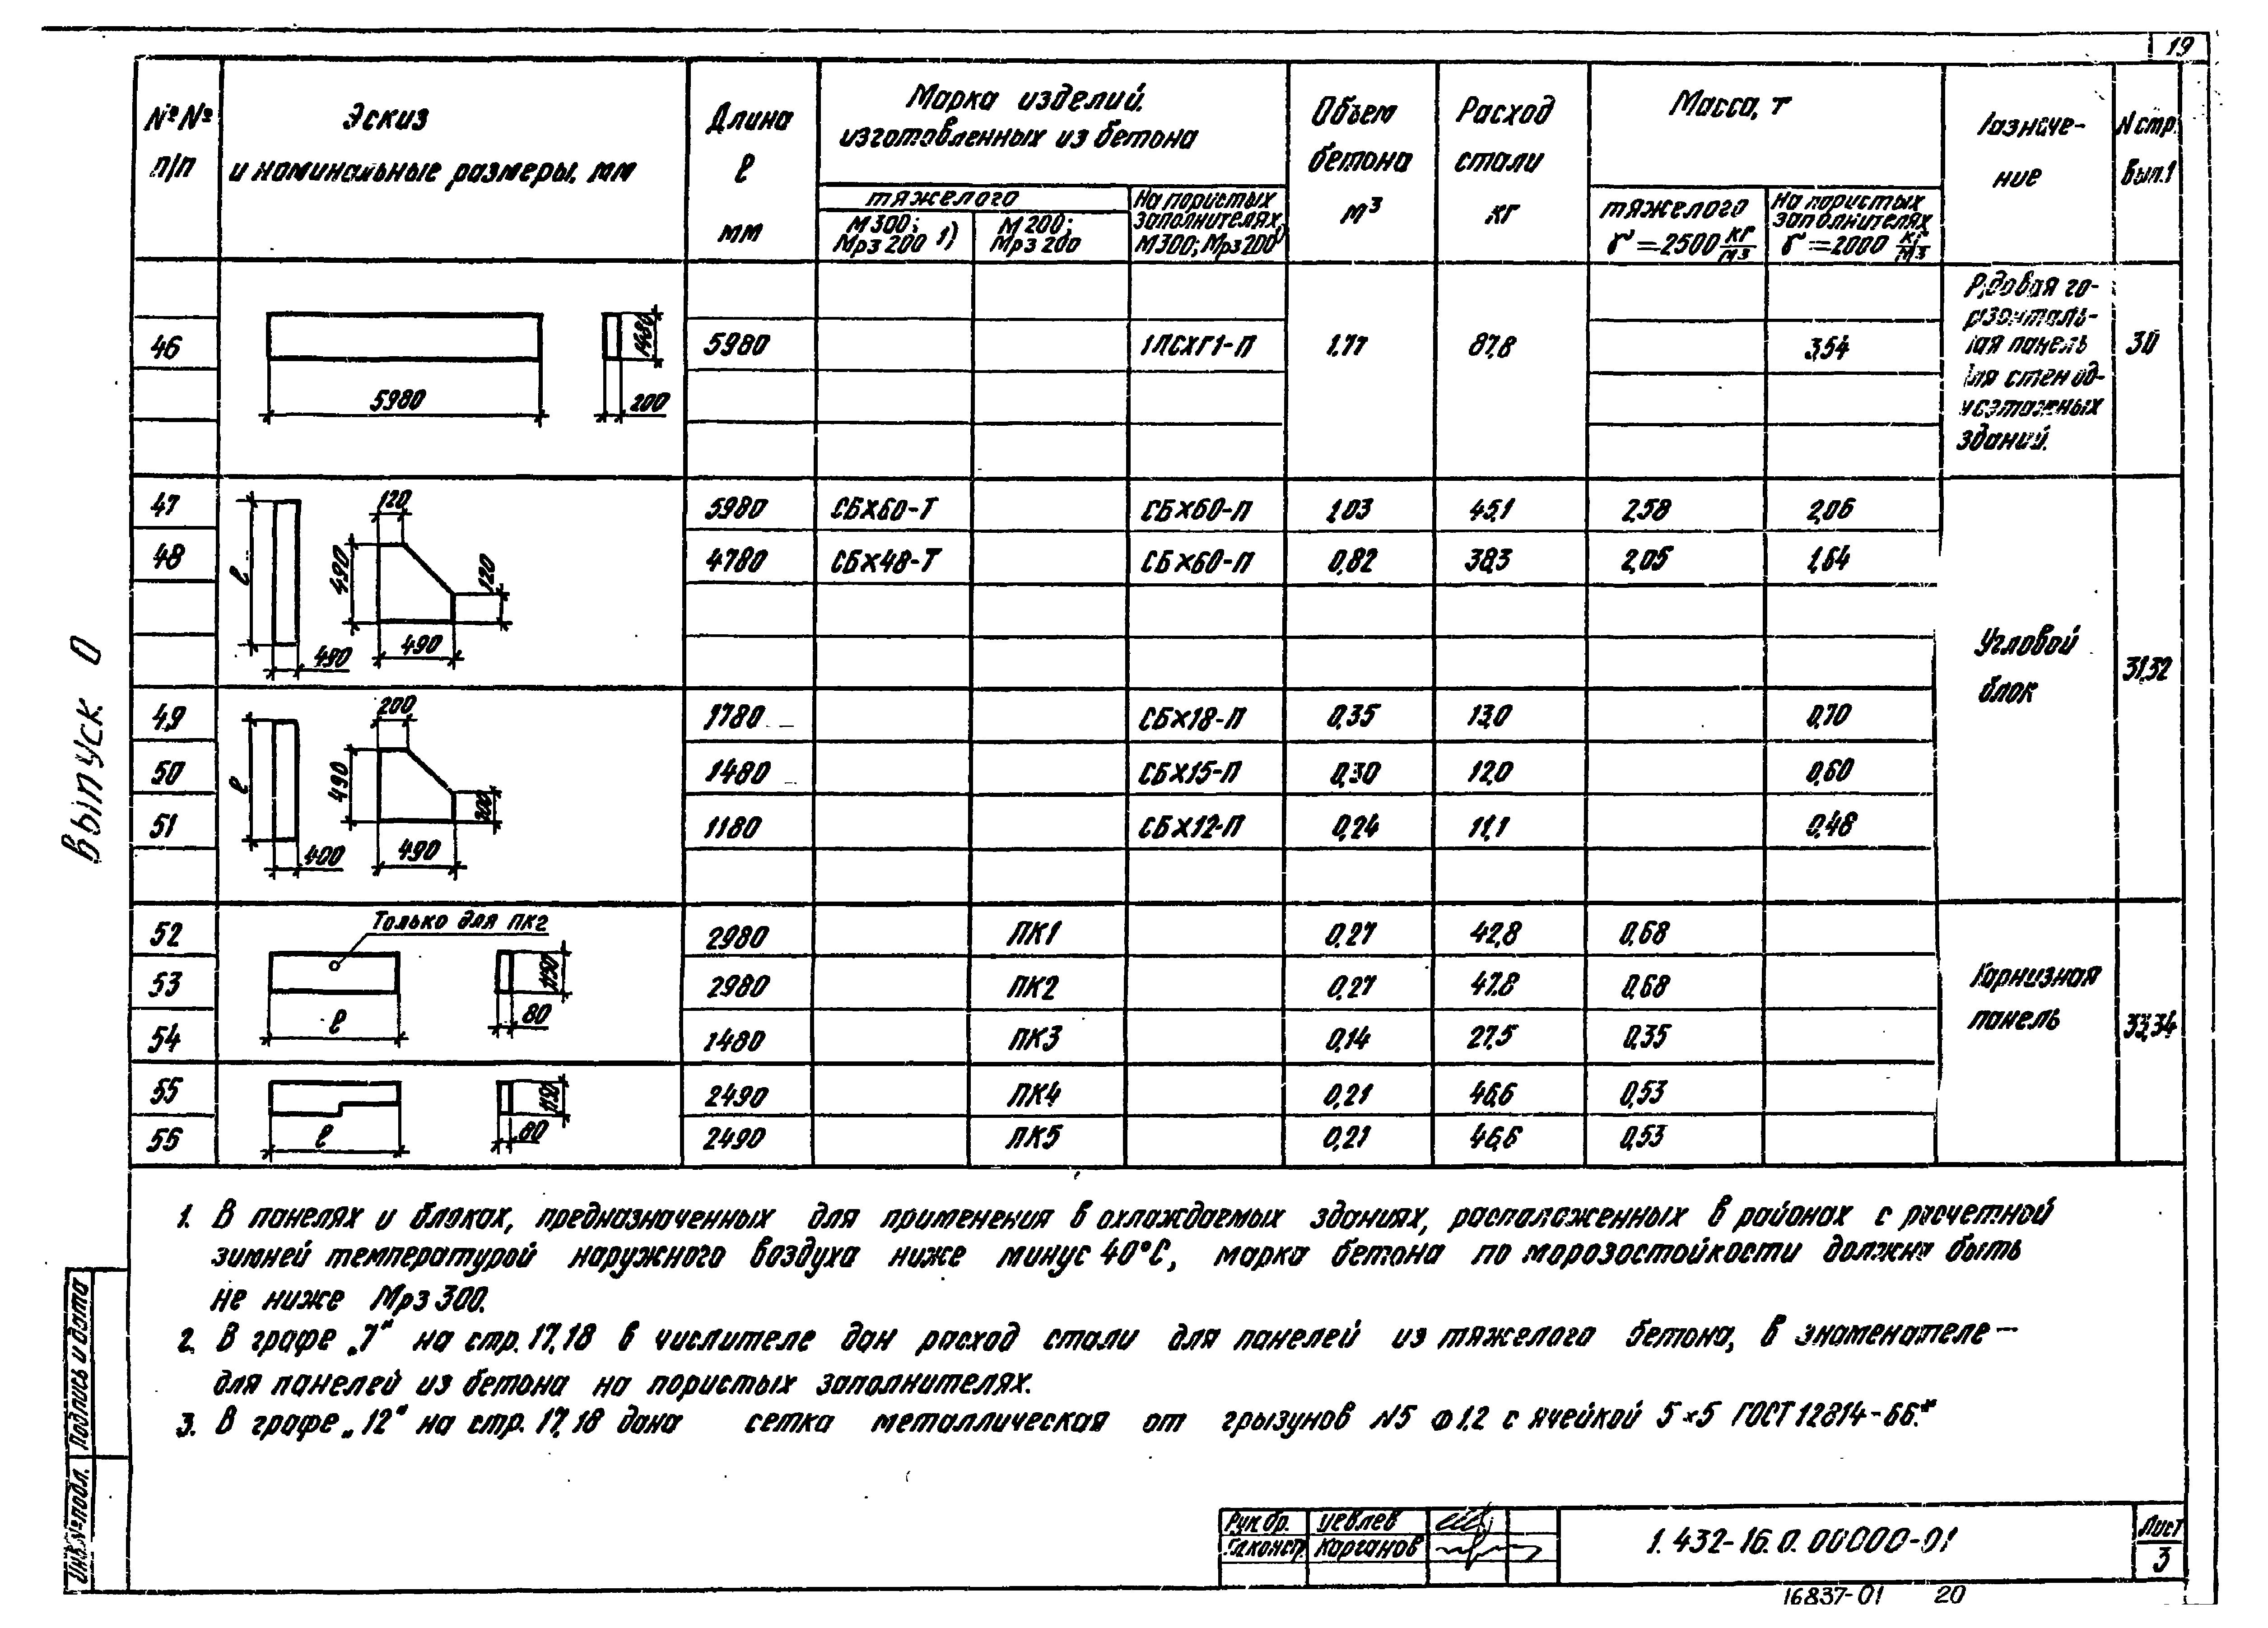 19
№№ п/п
Эскиз
и номинальные размеры, мм
Длина ℓ мм
Марка изделий,
изготовленных из бетона
тяжелого
М300; Мрз 200 1)
М200; Мрз 200
На пористых заполнителях, М300; Мрз200 1)
Объем бетона м³
Расход стали кг
Масса, т
тяжелого γ=2500 кг/м3
на пористых заполнителях γ=2000 кг/м3
Назначе-
ние
N стр. Вып.1
46 5980 1ПСХГ1-П 1,77 87,8 3,54 30
5980 200 1480
Рядовая го-
ризонталь-
ная панель
для стен од-
ноэтажных
зданий.
47 5980 СБХ60-Т СБХ60-П 1,03 45,1 2,58 2,06
48 4780 СБХ48-Т СБХ60-П 0,82 38,3 2,05 1,64
ℓ 490 120 490 490 120
Угловой
блок
31,32
49 1780 СБХ18-П 0,35 13,0 0,70
50 1480 СБХ15-П 0,30 12,0 0,60
51 1180 СБХ12-П 0,24 11,1 0,48
ℓ 400 200 490 490 200
52 2980 ПК1 0,27 42,8 0,68
53 2980 ПК2 0,27 47,8 0,68
54 1480 ПК3 0,14 27,5 0,35
Только для ПК2
ℓ 80
Карнизная
панель
33,34
55 2490 ПК4 0,21 46,6 0,53
56 2490 ПК5 0,21 46,6 0,53
ℓ 80
1. В панелях и блоках, предназначенных для применения в охлаждаемых зданиях, расположенных в районах с расчетной
зимней температурой наружного воздуха ниже минус 40°С, марка бетона по морозостойкости должна быть
не ниже Мрз 300.
2. В графе „7" на стр. 17,18 в числителе дан расход стали для панелей из тяжелого бетона, в знаменателе —
для панелей из бетона на пористых заполнителях.
3. В графе „12" на стр. 17,18 дана сетка металлическая от грызунов N5 Ф1.2 с ячейкой 5×5 ГОСТ 12814-66.*
Выпуск 0
Подпись и дата
Инв.№ подл.
Рук. бр.
Гл. констр. Карганов
1.432-16.0.00000-01
Лист
3
16837-01 20